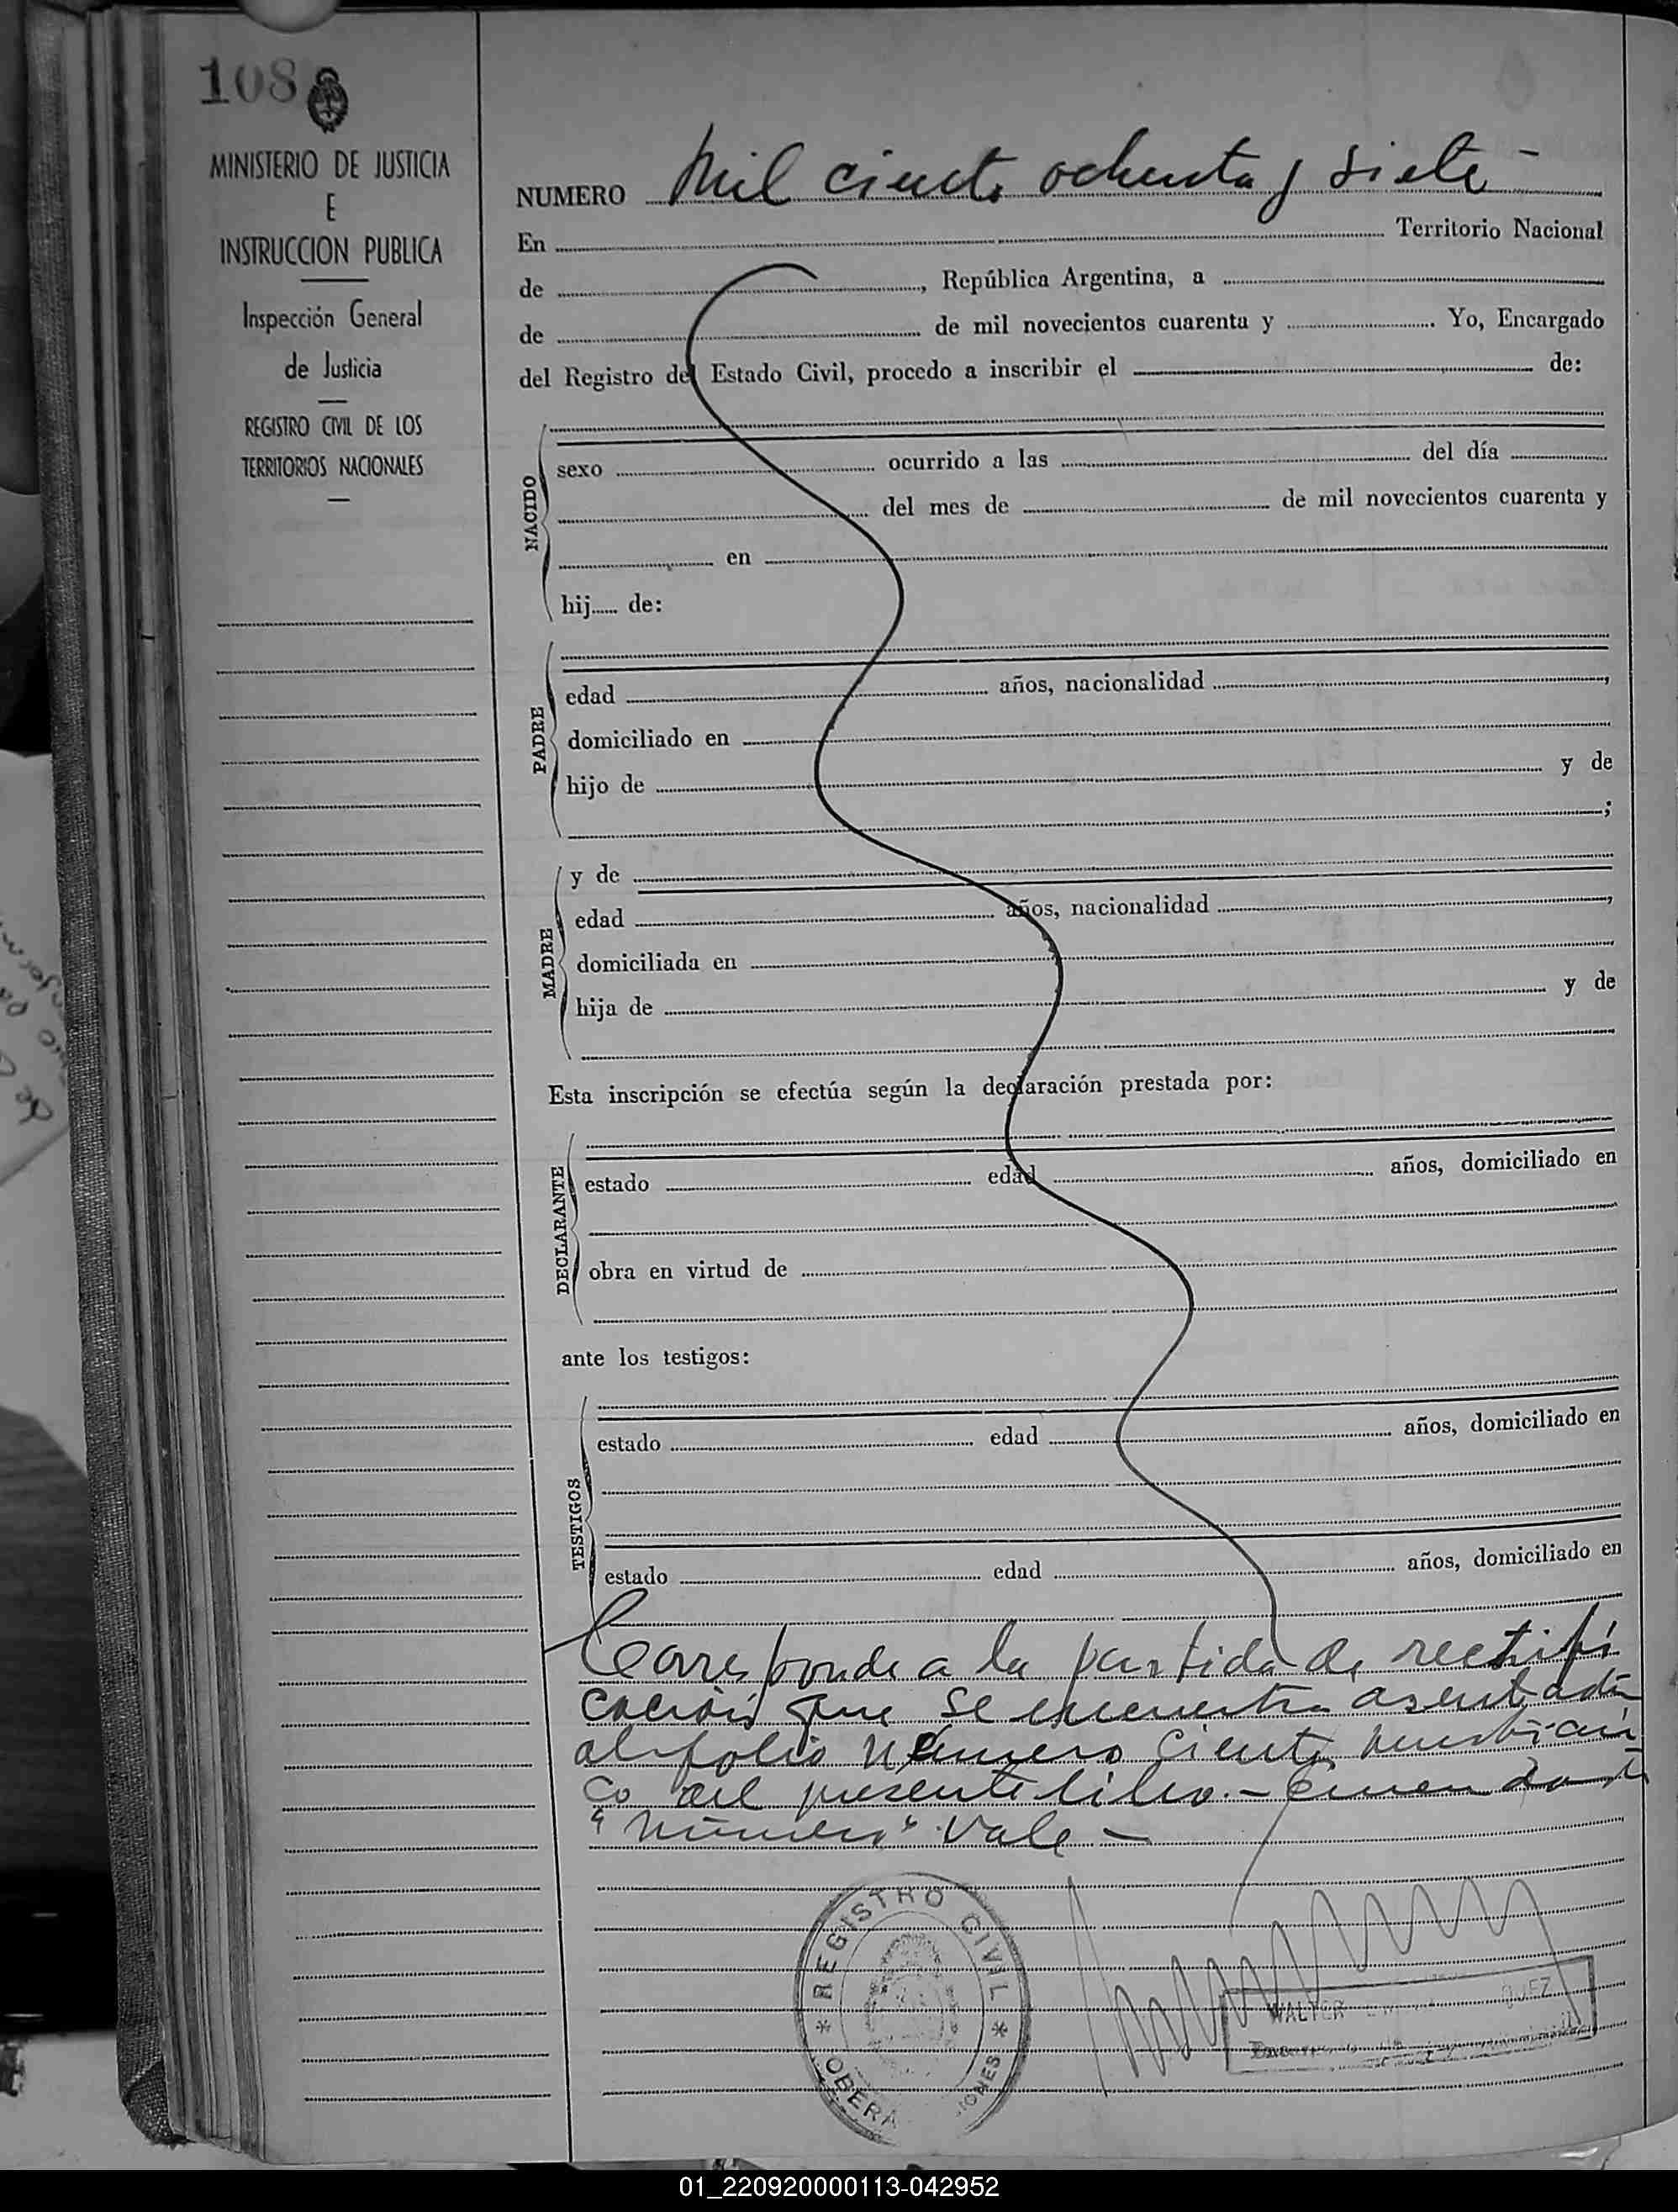 108
MINISTERIO DE JUSTICIA
E
INSTRUCCION PUBLICA
Inspección General
de Justicia
REGISTRO CIVIL DE LOS
TERRITORIOS NACIONALES
NUMERO Mil ciento ochenta y siete -
En Territorio Nacional
de , República Argentina, a
de de mil novecientos cuarenta y Yo, Encargado
del Registro del Estado Civil, procedo a inscribir el de:
NACIDO
sexo ocurrido a las del día
del mes de de mil novecientos cuarenta y
en
hij de:
PADRE
edad años, nacionalidad ,
domiciliado en
hijo de y de
;
MADRE
y de
edad años, nacionalidad ,
domiciliada en
hija de y de
Esta inscripción se efectúa según la declaración prestada por:
DECLARANTE
estado edad años, domiciliado en
obra en virtud de
ante los testigos:
TESTIGOS
estado edad años, domiciliado en
estado edad años, domiciliado en
Corresponde a la partida de rectifi
cación que se encuentra asentada
al folio número ciento
co del presente libro.- Enmendado
"número" Vale -
REGISTRO CIVIL
OBERA
WALTER
01_220920000113-042952